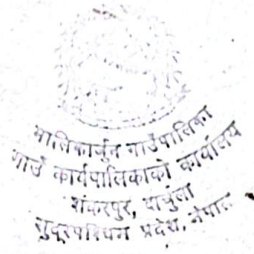 मालिकार्जुन गाउँपालिका
गाउँ कार्यपालिकाको कार्यालय
शंकरपुर, दार्चुला
सुदूरपश्चिम प्रदेश, नेपाल